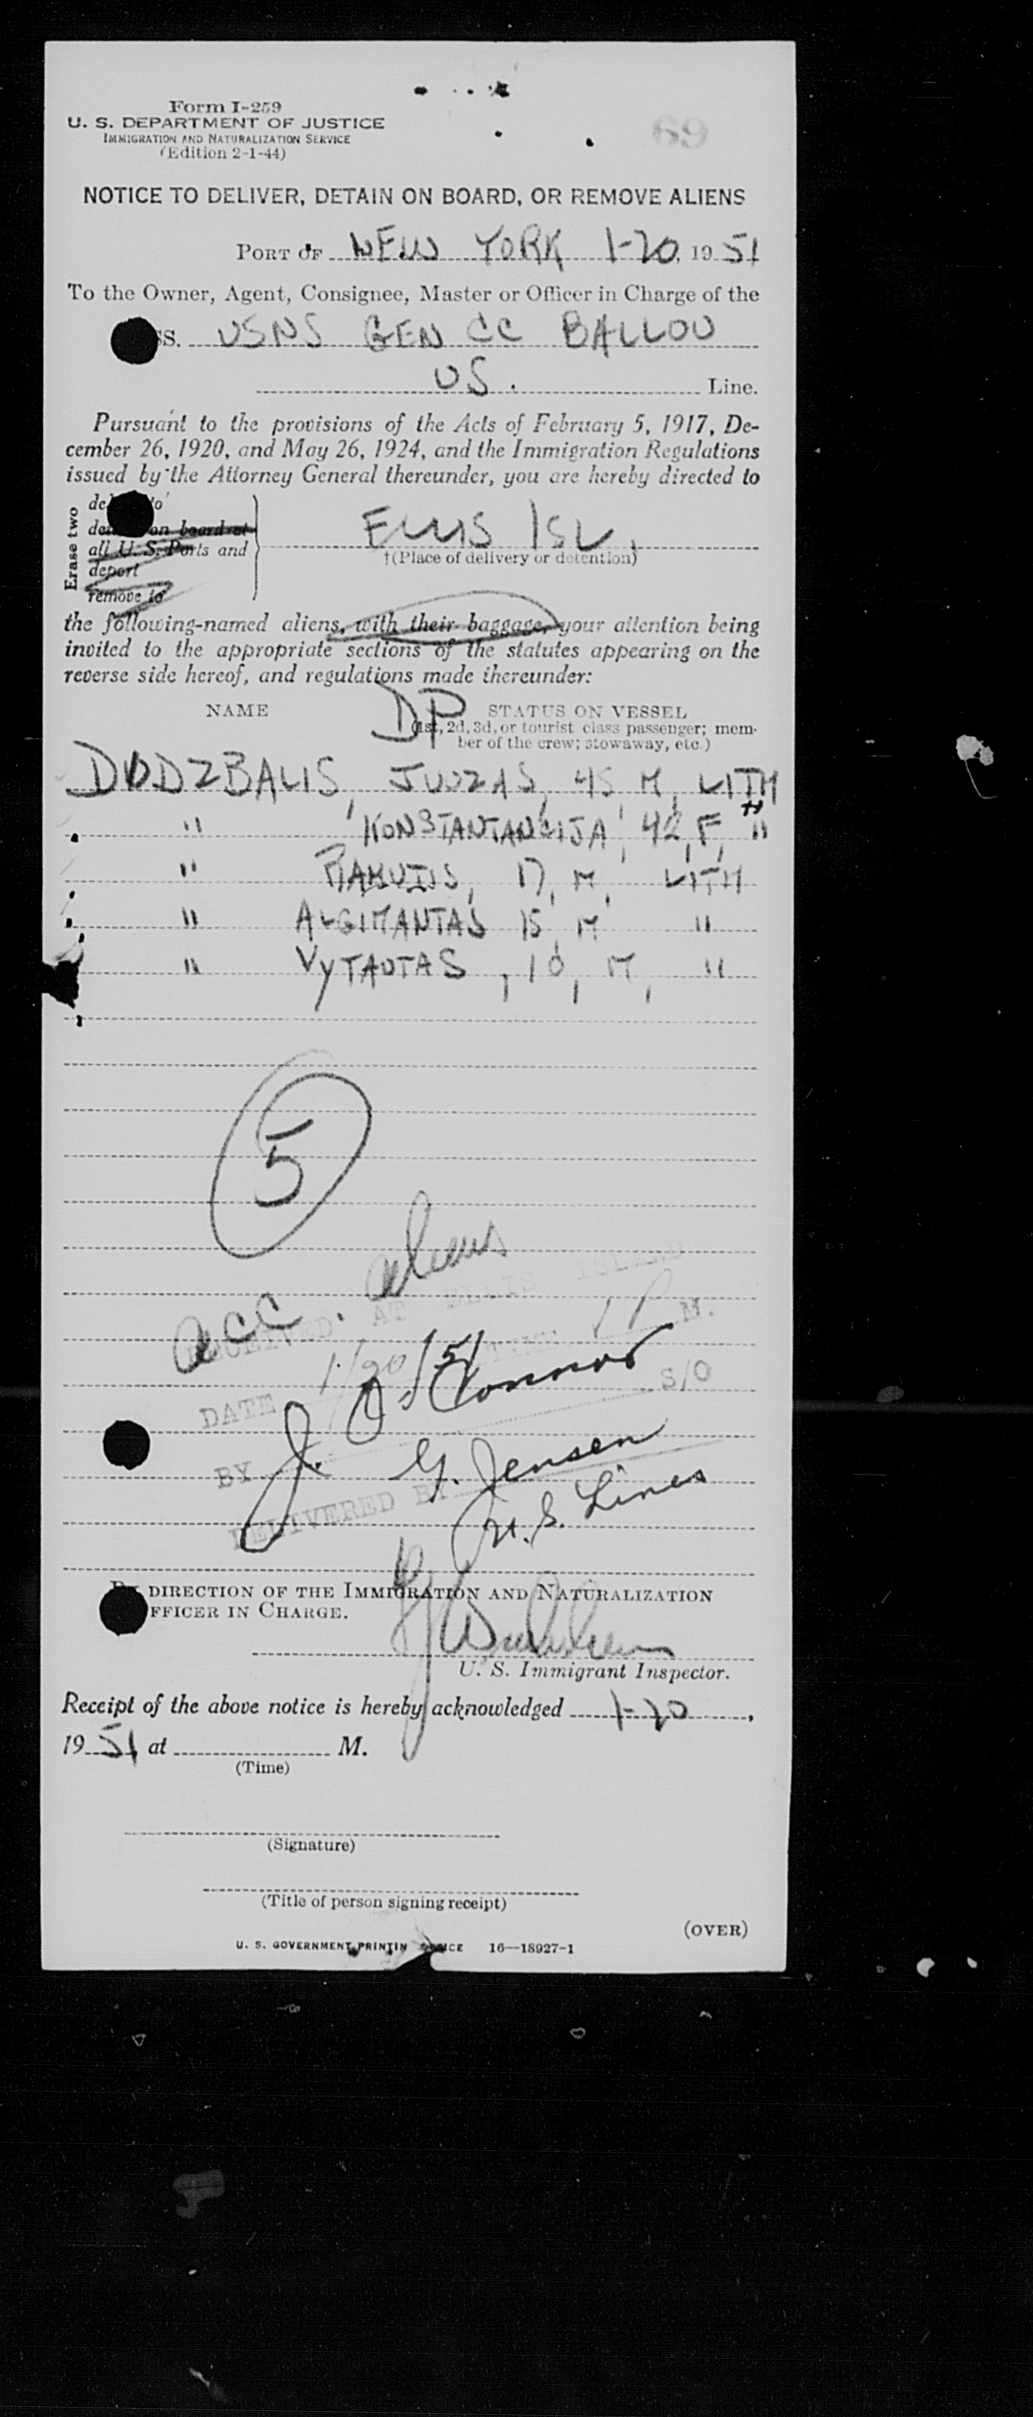 Form I-259
U. S. DEPARTMENT OF JUSTICE
IMMIGRATION AND NATURALIZATION SERVICE
(Edition 2-1-44)
69
NOTICE TO DELIVER, DETAIN ON BOARD, OR REMOVE ALIENS
PORT OF NEW YORK 1-20, 19 51
To the Owner, Agent, Consignee, Master or Officer in Charge of the
SS. USNS GEN CC BALLOU
US. Line.
Pursuant to the provisions of the Acts of February 5, 1917, De-
cember 26, 1920, and May 26, 1924, and the Immigration Regulations
issued by the Attorney General thereunder, you are hereby directed to
Erase two
on board at
all U. S. Ports and
deport
remove to
ELLIS ISL.
†(Place of delivery or detention)
the following-named aliens, with their baggage, your attention being
invited to the appropriate sections of the statutes appearing on the
reverse side hereof, and regulations made thereunder:
NAME DP STATUS ON VESSEL
(1st, 2d, 3d, or tourist class passenger; mem-
ber of the crew; stowaway, etc.)
DUDZBALIS, JUOZAS, 45, M, LITH
" KONSTANTANCIJA, 42, F, "
" RAMUTIS, 17, M, LITH
" ALGIMANTAS 15, M "
" VYTAUTAS, 10, M, "
5
acc. aliens
RECEIVED AT ELLIS ISLAND
DATE 1/20/51 TIME 1 P M.
BY J. O'Connor S/O
DELIVERED BY G. Jensen
U.S. Lines
DIRECTION OF THE IMMIGRATION AND NATURALIZATION
FFICER IN CHARGE.
U. S. Immigrant Inspector.
Receipt of the above notice is hereby acknowledged 1-20,
19 51 at M.
(Time)
(Signature)
(Title of person signing receipt)
(OVER)
U. S. GOVERNMENT PRINTIN 16—18927-1